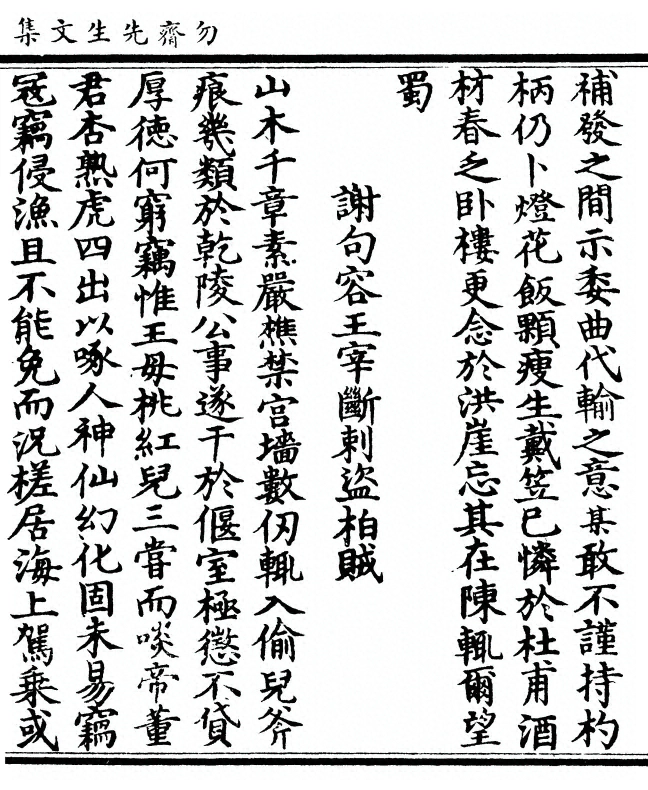 勿齋先生文集
補發之間示委曲代輸之意某敢不謹持杓
柄仍卜燈花飯顆瘦生戴笠已憐於杜甫酒
材春乏卧樓更念於洪崖忘其在陳輙爾望
蜀
謝句容王宰斷刺盜柏賊
山木千章素嚴樵禁宫墻數仞輙入偷兒斧
痕幾類於乾陵公事遂干於偃室極懲不貸
厚德何窮竊惟王母桃紅兒三嘗而啖帝董
君杏熟虎四出以啄人神仙幻化固未易竊
宼竊侵漁且不能免而况槎居海上駕乗或